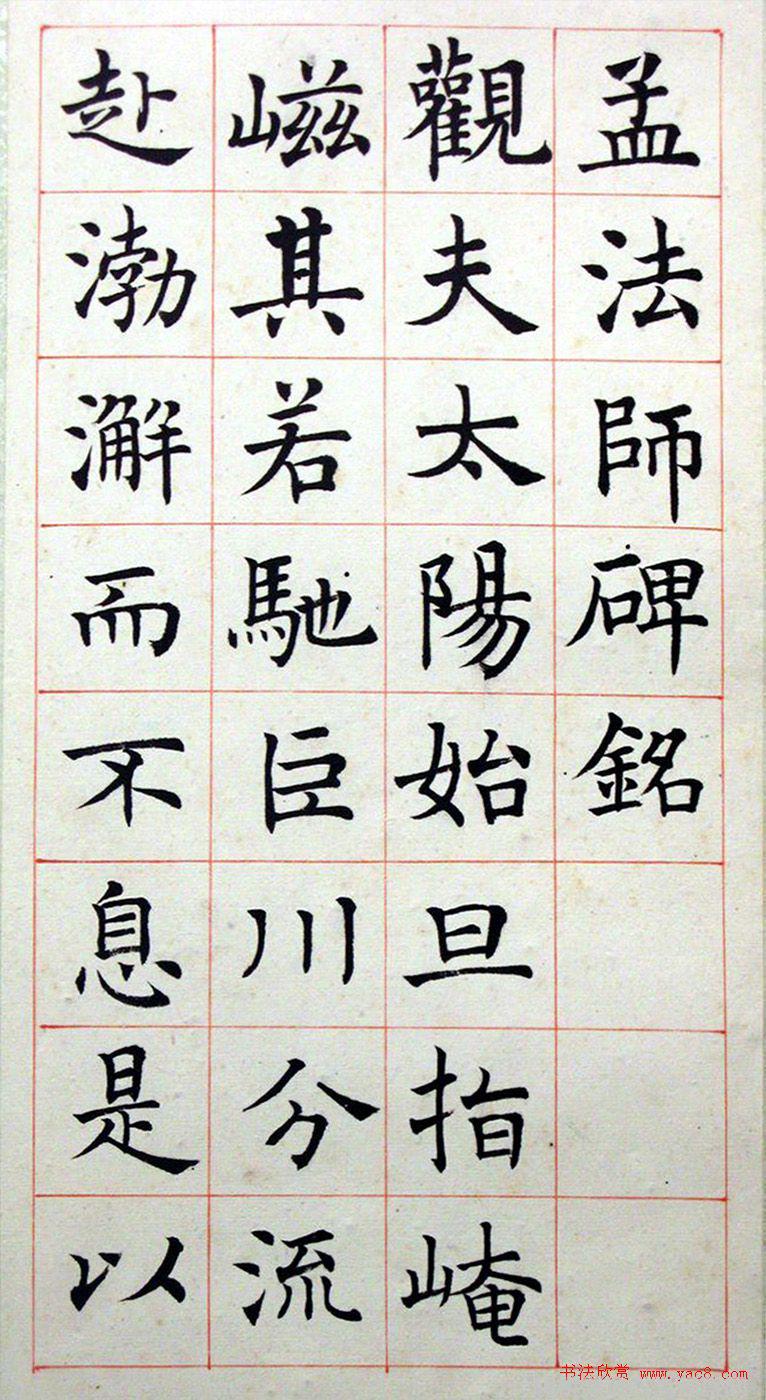 孟法師碑銘
觀夫太陽始旦指崦
嵫其若馳巨川分流
赴渤澥而不息是以
书法欣赏 www.yac8.com